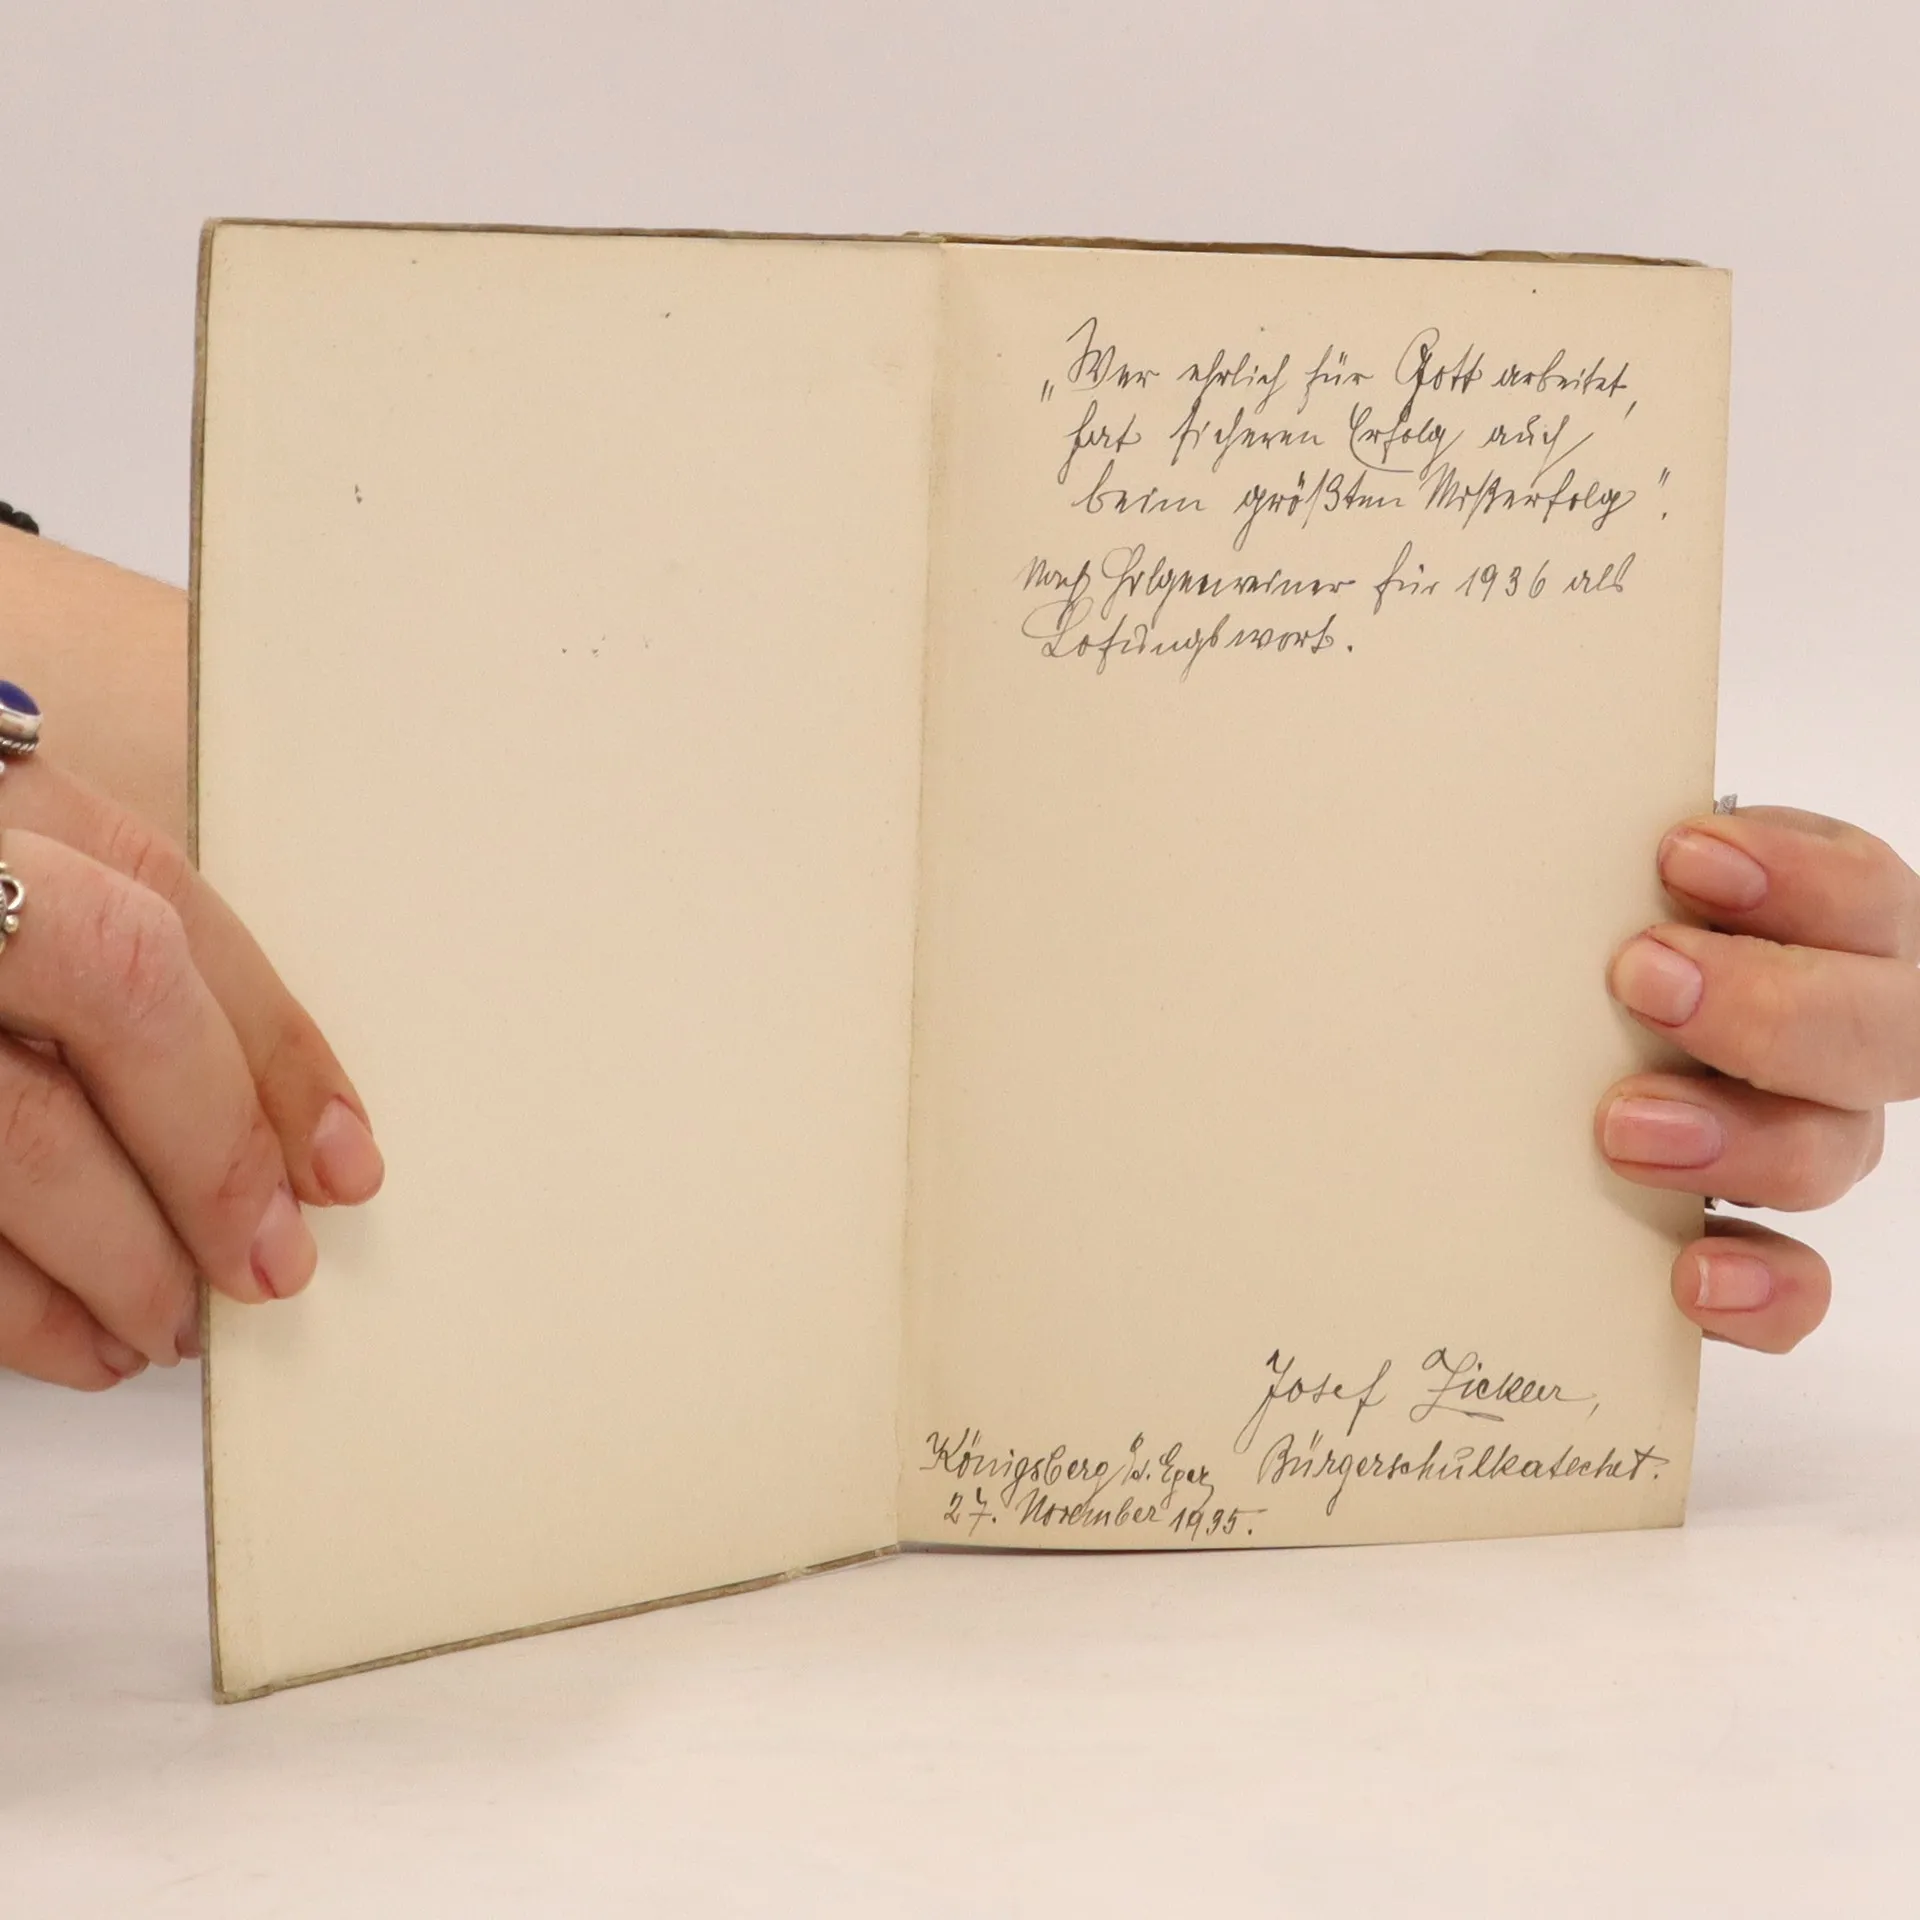 „Wer ehrlich für Gott arbeitet,
hat sicheren Erfolg auch
beim größten Mißerfolg".
Nach für 1936 als
Losungswort.
Josef Zicker,
Königsberg a. d. Eger Bürgerschulkatechet.
27. November 1935.